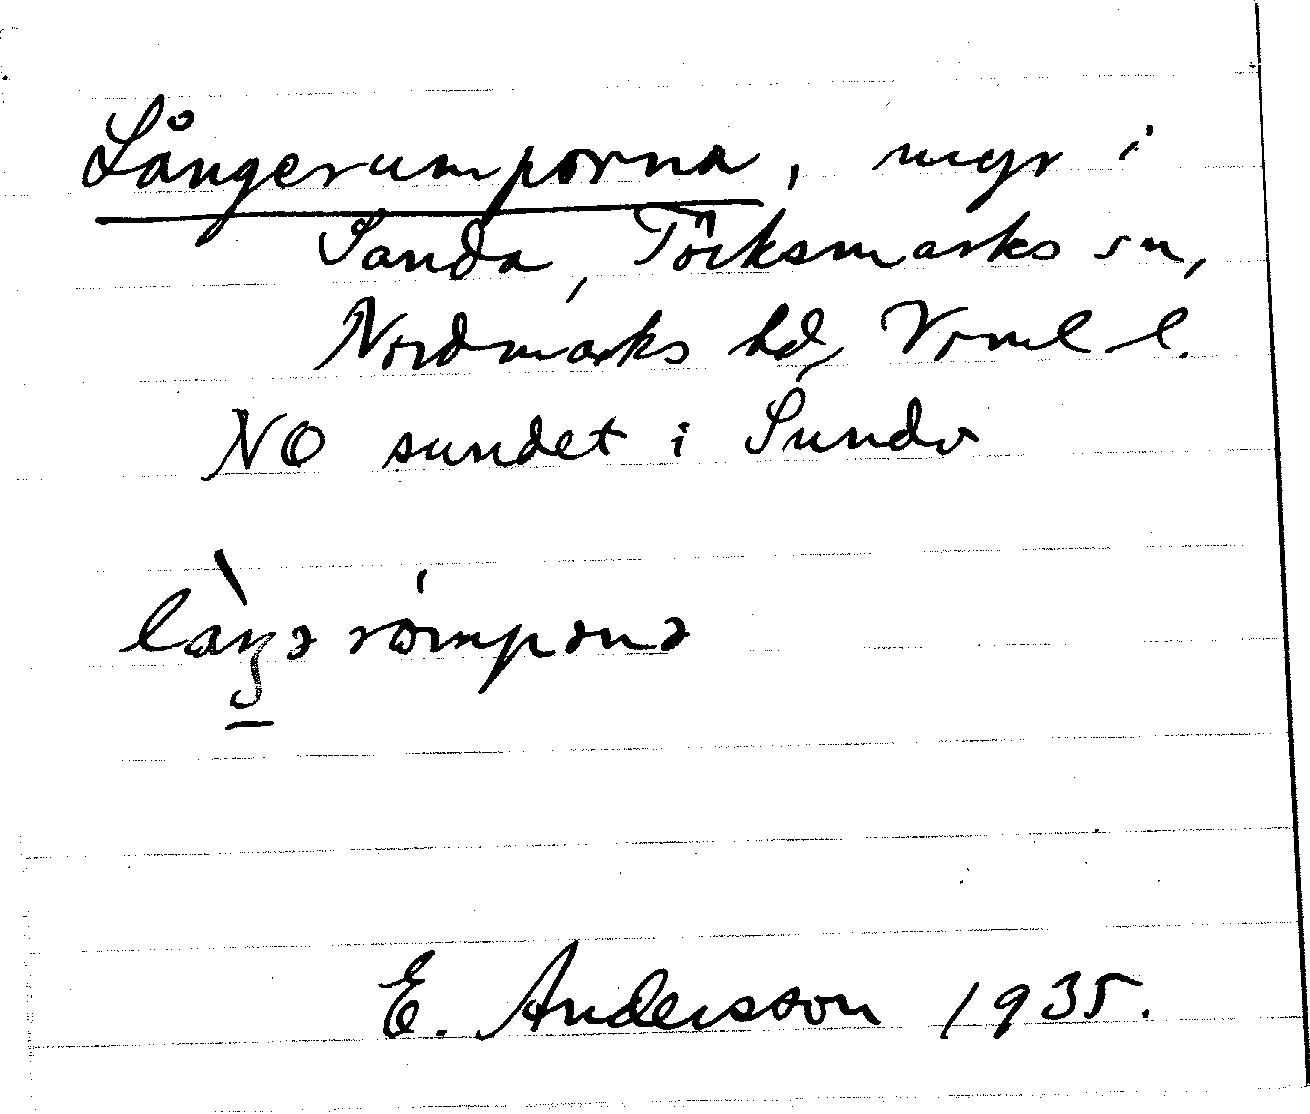 Långerumporna, megr i
Sanda, Töcksmarks sn,
Nordmarks hd, Vrml l.
NO sundet i Sunda
E. Andersson 1935.